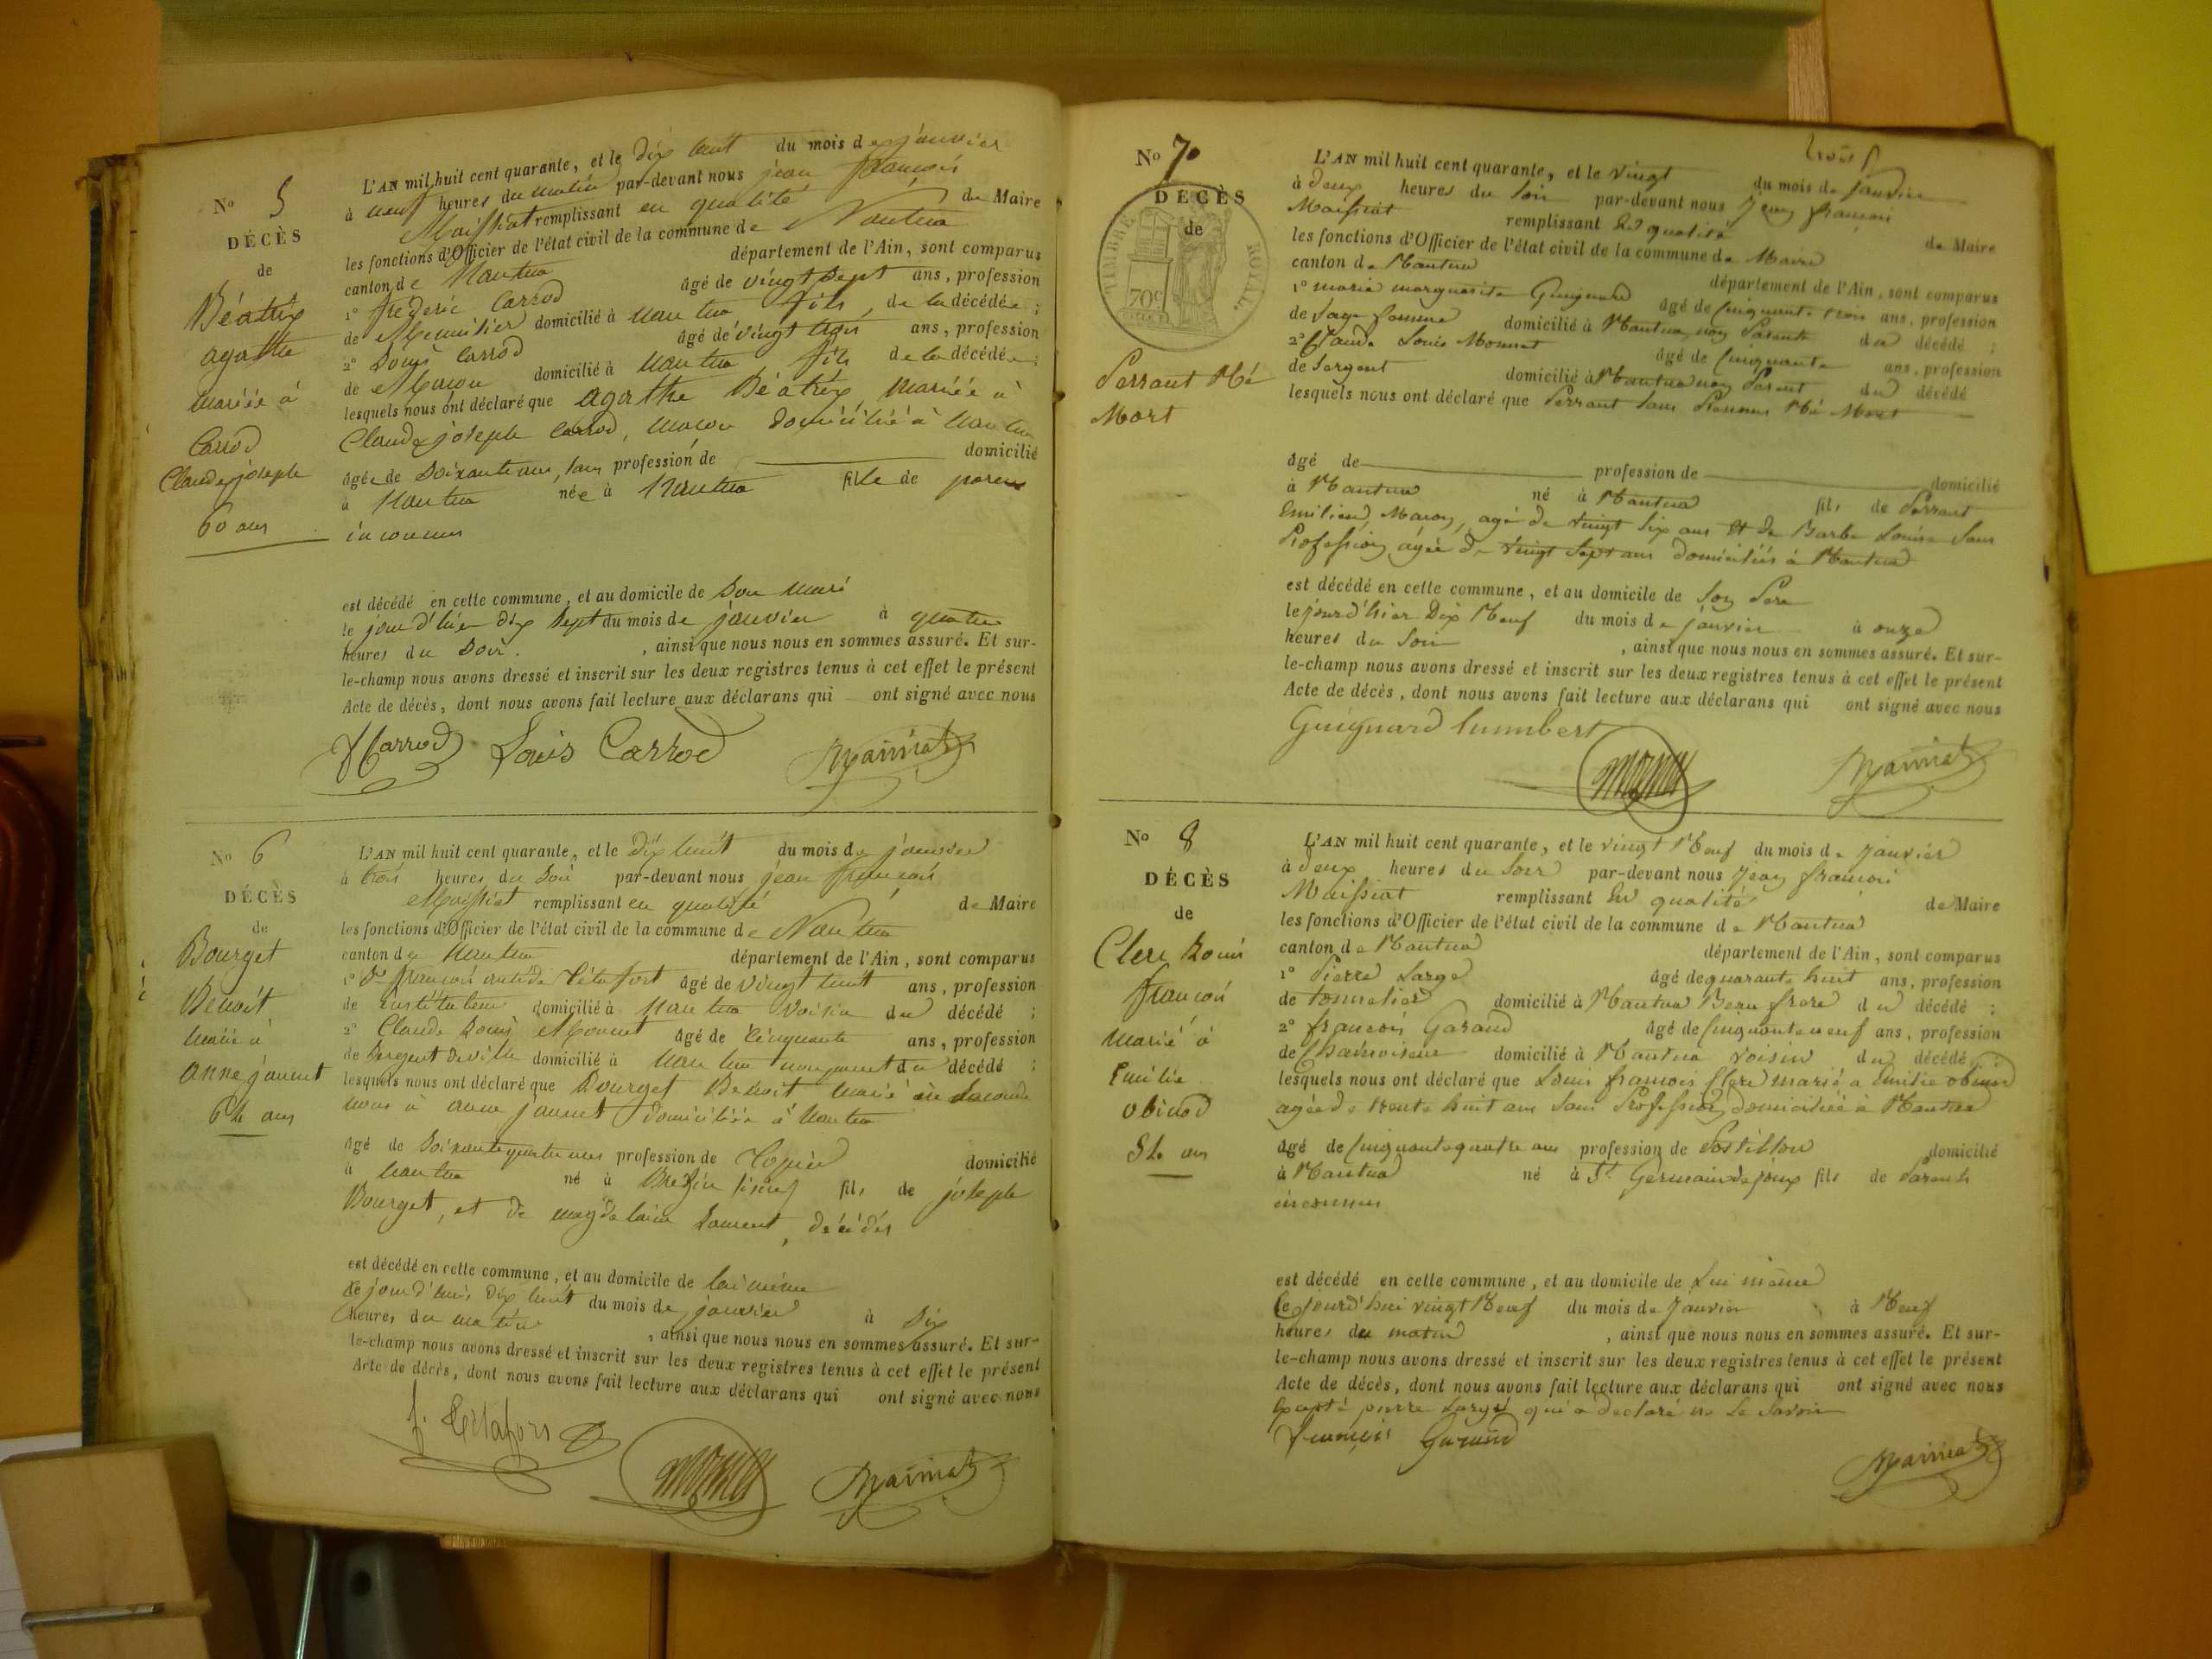 N° 5
DÉCÈS
de
Béatrix
agathe
mariée à
Carrod
Claude joseph
60 ans
L'AN mil huit cent quarante, et le dix huit du mois de janvier
à neuf heures du matin par-devant nous jean françois
Maissiat remplissant en qualité de Maire
les fonctions d'Officier de l'état civil de la commune de Nantua
canton de Nantua département de l'Ain, sont comparus
1° frederic Carrod âgé de vingt sept ans, profession
de Menuisier domicilié à nantua fils de la décédée ;
2° Louis Carrod âgé de vingt trois ans, profession
de Maçon domicilié à nantua fils de la décédée ;
lesquels nous ont déclaré que agathe Béatrix, mariée à
Claude joseph Carrod, maçon domiciliée à nantua
âgée de soixante ans, sans profession de domicilié
à nantua née à Nantua fille de parens
inconnus
est décédé en cette commune, et au domicile de son mari
le jour d'hier dix sept du mois de janvier à quatre
heures du soir. , ainsi que nous nous en sommes assuré. Et sur-
le-champ nous avons dressé et inscrit sur les deux registres tenus à cet effet le présent
Acte de décès, dont nous avons fait lecture aux déclarans qui ont signé avec nous
fCarrod Louis Carrod Maissiat
N° 6
DÉCÈS
de
Bourget
Benoit
marié à
anne jannet
64 ans
L'AN mil huit cent quarante, et le dix huit du mois de janvier
à trois heures du soir par-devant nous jean françois
Maissiat remplissant en qualité de Maire
les fonctions d'Officier de l'état civil de la commune de Nantua
canton de Nantua département de l'Ain, sont comparus
1° françois âgé de vingt huit ans, profession
de instituteur domicilié à nantua voisin du décédé ;
2° Claude Louis Monnet âgé de cinquante ans, profession
de sergent de ville domicilié à nantua non parent du décédé ;
lesquels nous ont déclaré que Bourget Benoit marié en seconde
nous à anne jannet domiciliée à nantua
âgé de soixante quatre ans profession de domicilié
à nantua né à fils de joseph
Bourget, et de magdelaine Laurent, décédés
est décédé en cette commune, et au domicile de lui même
le jour d'hui dix huit du mois de janvier à dix
heures du matin , ainsi que nous nous en sommes assuré. Et sur-
le-champ nous avons dressé et inscrit sur les deux registres tenus à cet effet le présent
Acte de décès, dont nous avons fait lecture aux déclarans qui ont signé avec nous
Maissiat
trois
N° 7
DÉCÈS
de
TIMBRE ROYAL
70c
Perrant Né
Mort
L'AN mil huit cent quarante, et le vingt du mois de janvier
à deux heures du soir par-devant nous Jean françois
Maissiat remplissant en qualité de Maire
les fonctions d'Officier de l'état civil de la commune de
canton de Nantua département de l'Ain, sont comparus
1° marie marguerite Guignard âgé de cinquante trois ans, profession
de sage femme domicilié à Nantua, non Parente du décédé ;
2° Claude Louis Monnet âgé de cinquante ans, profession
de sergent domicilié à Nantua non Parent du décédé
lesquels nous ont déclaré que Perrant sans Prenoms Né Mort
âgé de profession de domicilié
à Nantua né à Nantua fils de Perrant
Emilien Maçon, agé de vingt six ans et de Barbe Louise sans
Profession agée de vingt sept ans domiciliés à Nantua
est décédé en cette commune, et au domicile de son Pere
le jour d'hier Dix Neuf du mois de janvier à onze
heures du soir , ainsi que nous nous en sommes assuré. Et sur-
le-champ nous avons dressé et inscrit sur les deux registres tenus à cet effet le présent
Acte de décès, dont nous avons fait lecture aux déclarans qui ont signé avec nous
Guignard humbert
Maissiat
N° 8
DÉCÈS
de
Clerc Louis
françois
marié à
Emilie
obinod
54 ans
L'AN mil huit cent quarante, et le vingt Neuf du mois de Janvier
à deux heures du soir par-devant nous Jean françois
Maissiat remplissant en qualité de Maire
les fonctions d'Officier de l'état civil de la commune de Nantua
canton de Nantua département de l'Ain, sont comparus
1° Pierre Large âgé de quarante huit ans, profession
de tonnelier domicilié à Nantua Beau frere du décédé ;
2° françois Garand âgé de cinquante neuf ans, profession
de domicilié à Nantua voisin du décédé
lesquels nous ont déclaré que Louis françois Clerc marié a Emilie obinod
agée de trente huit ans sans Profession domiciliée à Nantua
âgé de cinquante quatre ans profession de Postillon domicilié
à Nantua né à St Germain de joux fils de Parents
inconnus
est décédé en cette commune, et au domicile de Lui même
Ce jourd'hui vingt Neuf du mois de Janvier à Neuf
heures du matin , ainsi que nous nous en sommes assuré. Et sur-
le-champ nous avons dressé et inscrit sur les deux registres tenus à cet effet le présent
Acte de décès, dont nous avons fait lecture aux déclarans qui ont signé avec nous
Excepté pierre Large qui a declaré ne Le savoir
françois Garand
Maissiat